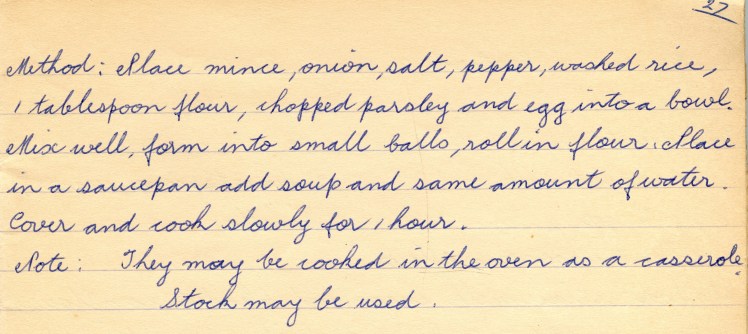 27
Method: Place mince, onion, salt, pepper, washed rice,
1 tablespoon flour, chopped parsley and egg into a bowl.
Mix well, form into small balls, roll in flour. Place
in a saucepan add soup and same amount of water.
Cover and cook slowly for 1 hour.
Note: They may be cooked in the oven as a casserole.
Stock may be used.